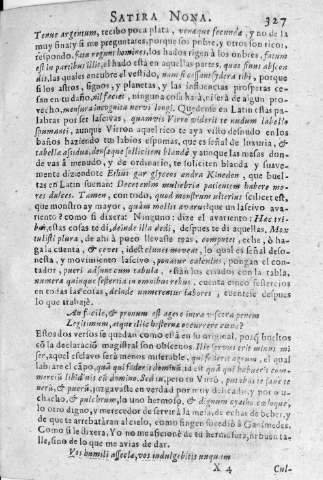 SATIRA NONA. 327
Tenue argentum, recibo poca plata, venaque secunda, y no de la
muy fina; y si me preguntares, porque soy pobre, y otros son ricos,
respondo, fata regunt homines, los hados rigen à los onbres, fatum
est in partibus illis, el hado està en aquellas partes, quas sinus abscon
dit, las quales encubre el vestido, nam si cessant sydera tibi, porque
si los astros, signos, y planetas, y las influencias prosperas ce-
san en tu daño, nil faciet, ninguna cosa hará, ni serà de algun pro-
vecho, mensura incognita nervi longi. Quedense en Latin estas pa-
labras por ser lascivas, quamvis Virro viderit te nudum labello
spumanti, aunque Virron aquel rico te aya visto desnudo en los
baños haziendo tus labios espumas, que es señal de luxuria, &
tabella assidua, densaque sollicitent blandè, y aunque las mesas don-
de vas à menudo, y de ordinario, te soliciten blanda y suave-
mente diziendote
tan en Latin suenan:
res dulces. Tamen, con todo, quod monstrum ulterius, scilicet est,
que monstro ay mayor, quàm mollis avarus, que un lascivo ava-
riento? como si dixera: Ninguno: dize el avariento: Hæc tri-
bui, estas cosas te di, deinde illa dedi, despues te di aquellas, Mox
tulisti plura, de ahi à poco llevaste mas, computet, eche, ò ha-
ga la cuenta, & cevet, idest clunes movet, lo qual es señal desho-
nesta, y movimiento lascivo, ponatur calculus, pongan el con-
tador, pueri adsunt cum tabula, estàn los criados con la tabla,
numera quinque sestertia in omnibus rebus, cuenta cinco sestercios
en todas las cosas, deinde numerentur labores, cuentese despues
lo que trabajè.
An facile, & pronum est agere intra viscera penem
Legitimum, atque illic hesternæ occurrere cœnæ?
Estos dos versos se quedan como està en su original, porq̃ bueltos
cõ la declaraciõ magistral son obscenos. Ille servus erit minus mi
ser, aquel esclavo serà menos miserable, qui foderit agrum, el qual
labrare el cãpo,
, pero tu Virrò, putabas te tane-
rum, & puerum, juzgavaste en verdad por muy delicado, y por mu-
chacho, & pulchrum, lo uno hermoso, & dignum cyatho cœloque,
lo otro digno, y merecedor de servir à la mesa, de echar de bever, y
de que te arrebatàran al cielo, como fingen sucediò à Ganimedes.
Como si le dixera, Yo no me aficionè de tu hermosura, ni buen ta-
lle, sino de lo que me avias de dar.
Vos humili assecla, vos indulgebitis unquam
X 4 Cul-